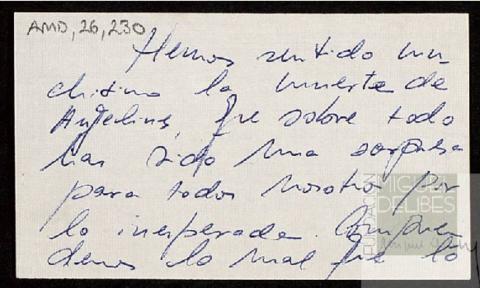 AMD, 26, 230
Hemos sentido mu-
chísimo la muerte de
Angelines, que sobre todo
has sido una sorpresa
para todos nosotros por
lo inesperada. Compren-
demos lo mal que lo
FUNDACIÓN
MIGUEL
DELIBES